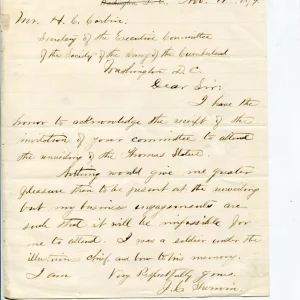 Washington, D.C. Nov. 11 1879
Mr. H. C. Corbin,
Secretary of the Executive Committee
of the Society of the Army of the Cumberland
Washington D C
Dear Sir:
I have the
honor to acknowledge the receipt of the
invitation of your committee to attend
the unveiling of the Thomas Statue.
Nothing would give me greater
pleasure than to be present at the unveiling
but my business engagements are
such that it will be impossible for
me to attend. I was a soldier under the
illustrious chief and bow to his memory.
I am Very Respectfully yours,
J. C.